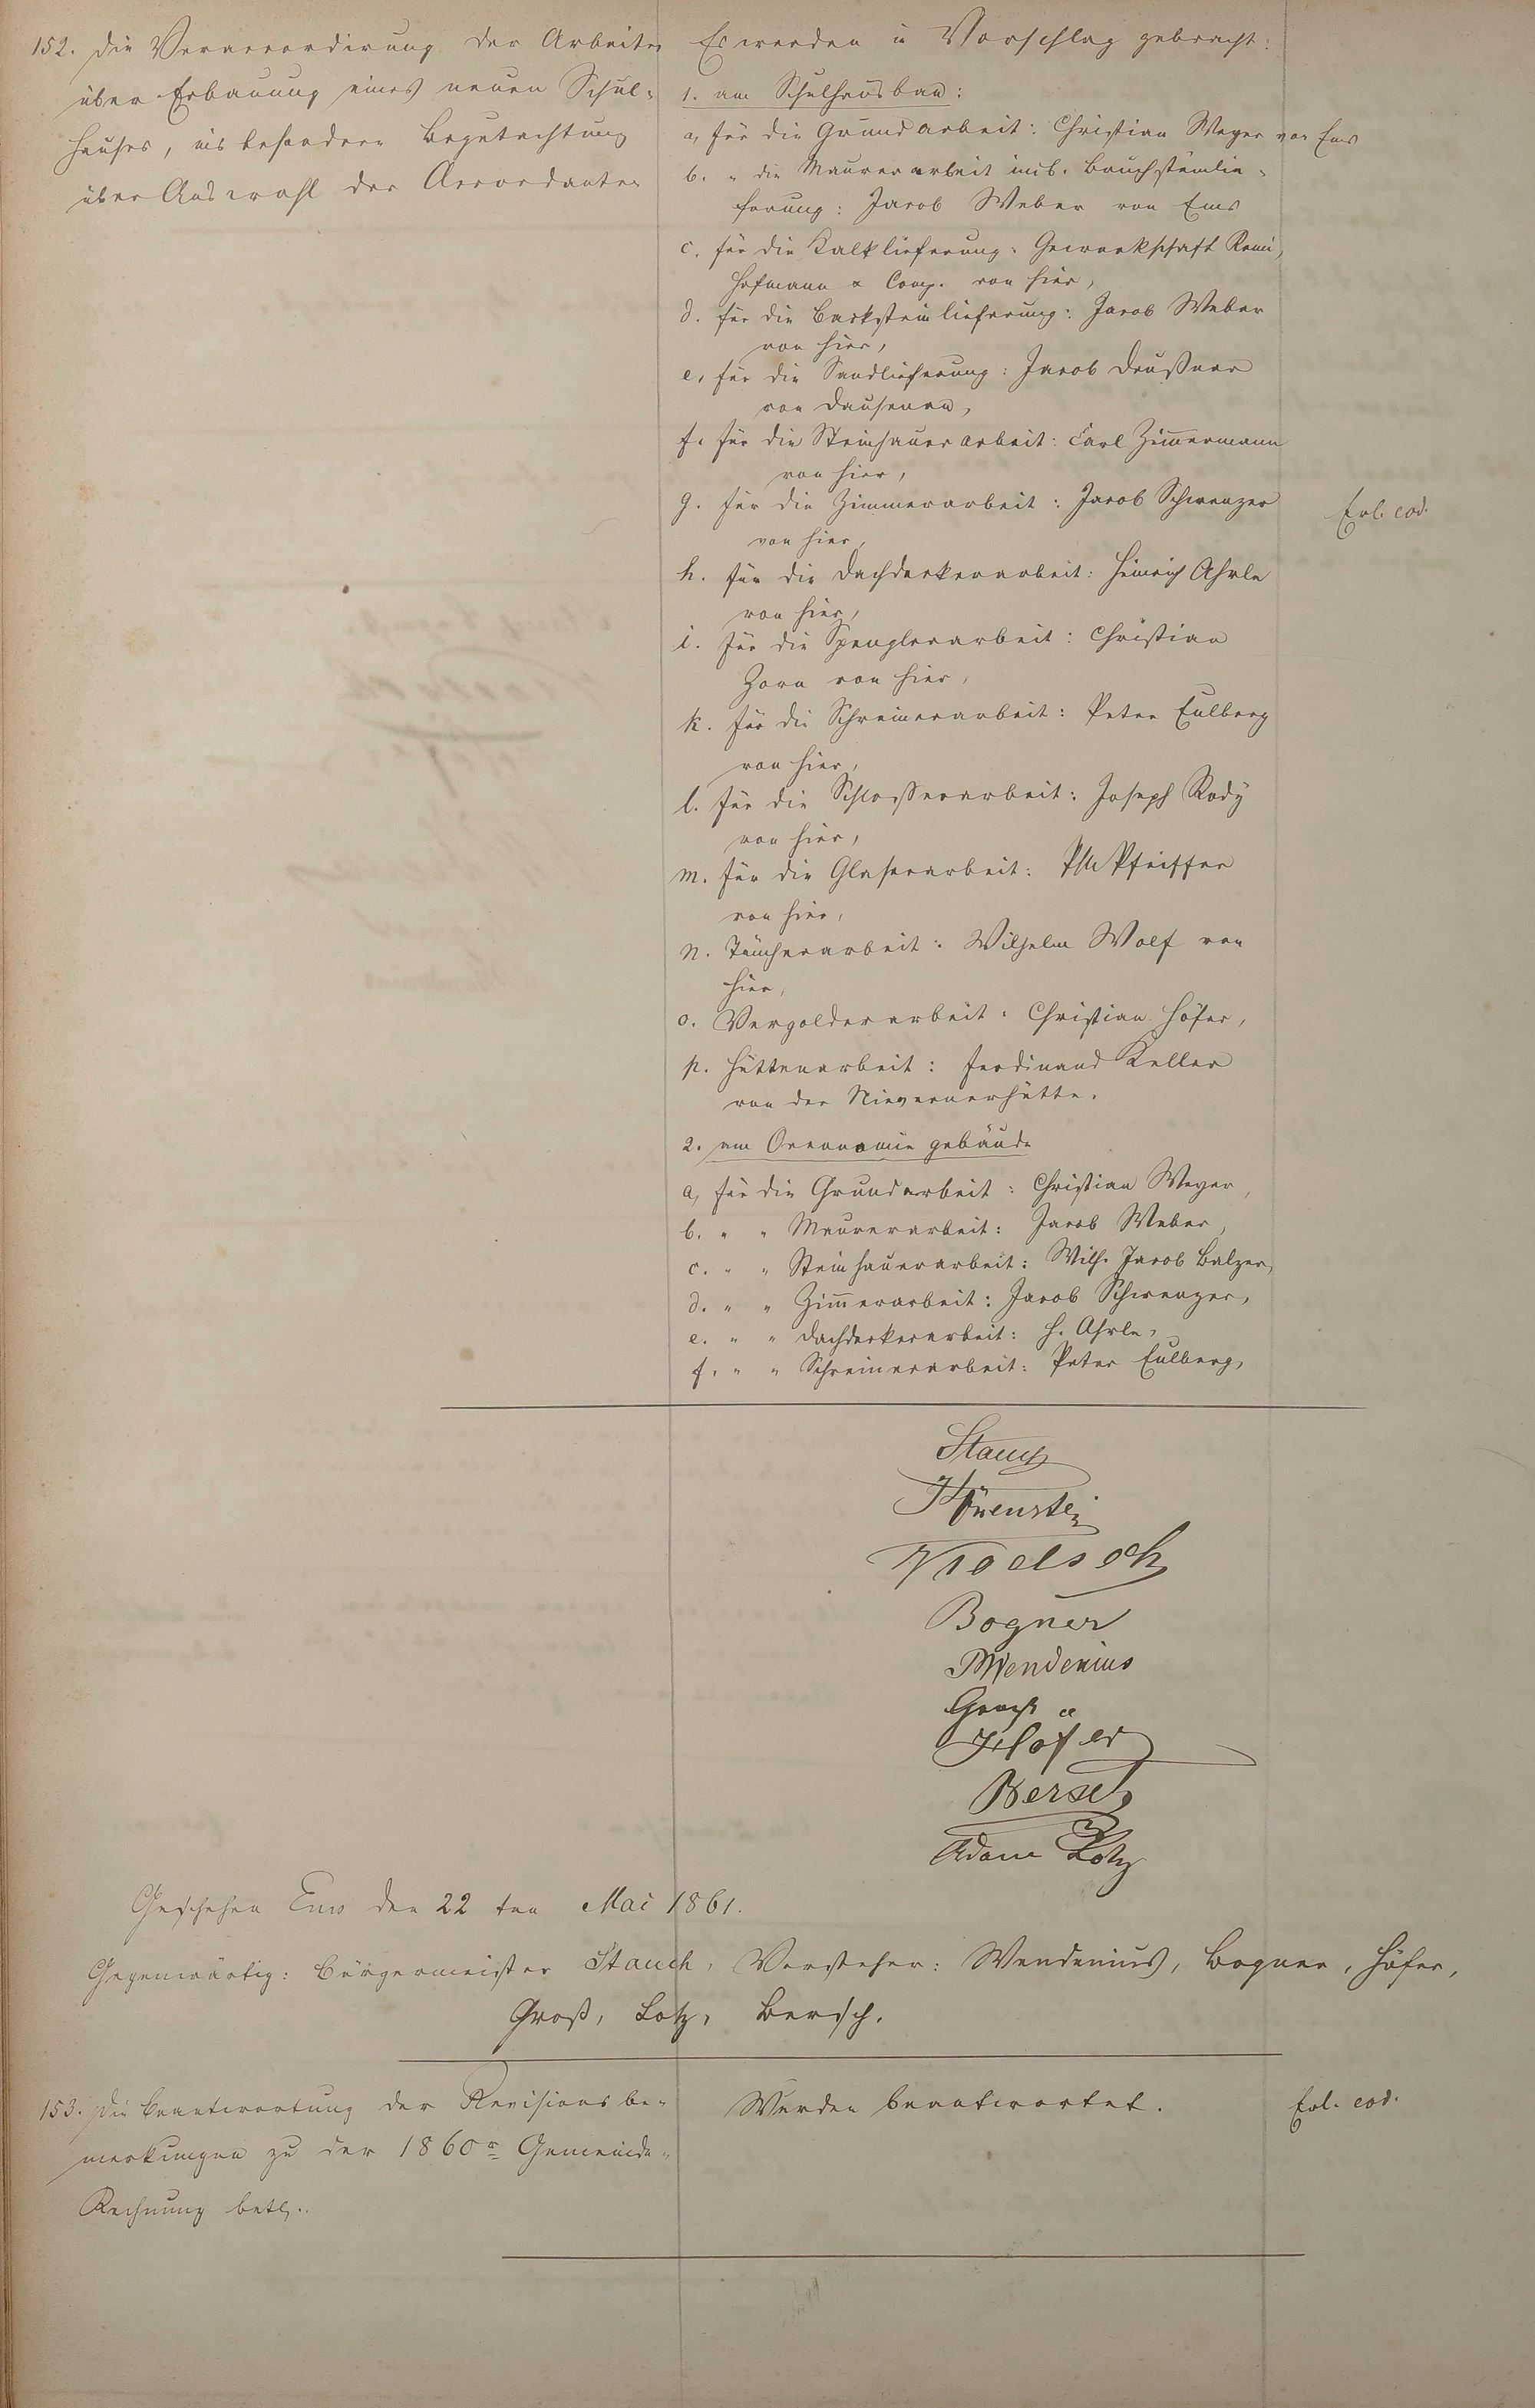 152. Die Veraccordirung der Arbeiten
über Erbauung eines neuen Schul-
hauses, insbesondere Begutachtung
über Auswahl der Accordanten
Es werden in Vorschlag gebracht:
1. am Schulhausbau:
a, für die Grundarbeit: Christian Weyer von Ems
b. " die Maurerarbeit incl. Bruchsteinlie-
ferung: Jacob Weber von Ems
c. für die Kalklieferung: Gewerkschaft Remi,
Hofmann & Comp. von hier,
d. für die Backsteinlieferung: Jacob Weber
von hier,
e, für die Sandlieferung: Jacob Deußner
von Dausenau,
f. für die Steinhauerarbeit: Carl Zimmermann
von hier,
g. für die Zimmerarbeit: Jacob Schwenzer
von hier,
Erl. eod.
h. für die Dachdeckerarbeit: Heinrich Ahrle
von hier,
i. für die Spenglerarbeit: Christian
Zorn von hier,
k. für die Schreinerarbeit: Peter Eulberg
von hier,
l. für die Schlosserarbeit: Joseph Rody
von hier,
m. für die Glaserarbeit: Pfeiffer
von hier,
n. Tüncherarbeit: Wilhelm Wolf von
hier,
o. Vergolderarbeit: Christian Höfer,
p. Hüttenarbeit: Ferdinand Keller
von der Nievernerhütte.
2. am Oeconomiegebäude
a, für die Grundarbeit: Christian Weyer,
b. " " Maurerarbeit: Jacob Weber,
c. " " Steinhauerarbeit: Wilh. Jacob Balzer,
d. " " Zimmerarbeit: Jacob Schwenzer,
e. " " Dachdeckerarbeit: H. Ahrle,
f. " " Schreinerarbeit: Peter Eulberg,
Stauch
Bogner
Wendenius
Groß
Höfer
Bersch
Adam Lotz
Geschehen Ems den 22ten Mai 1861.
Gegenwärtig: Bürgermeister Stauch, Vorsteher: Wendenius, Bogner, Höfer,
Groß, Lotz, Bersch.
153. Die Beantwortung der Revisionsbe-
merkungen zu der 1860r Gemeinde-
Rechnung betr.
Werden beantwortet.
Erl. eod.